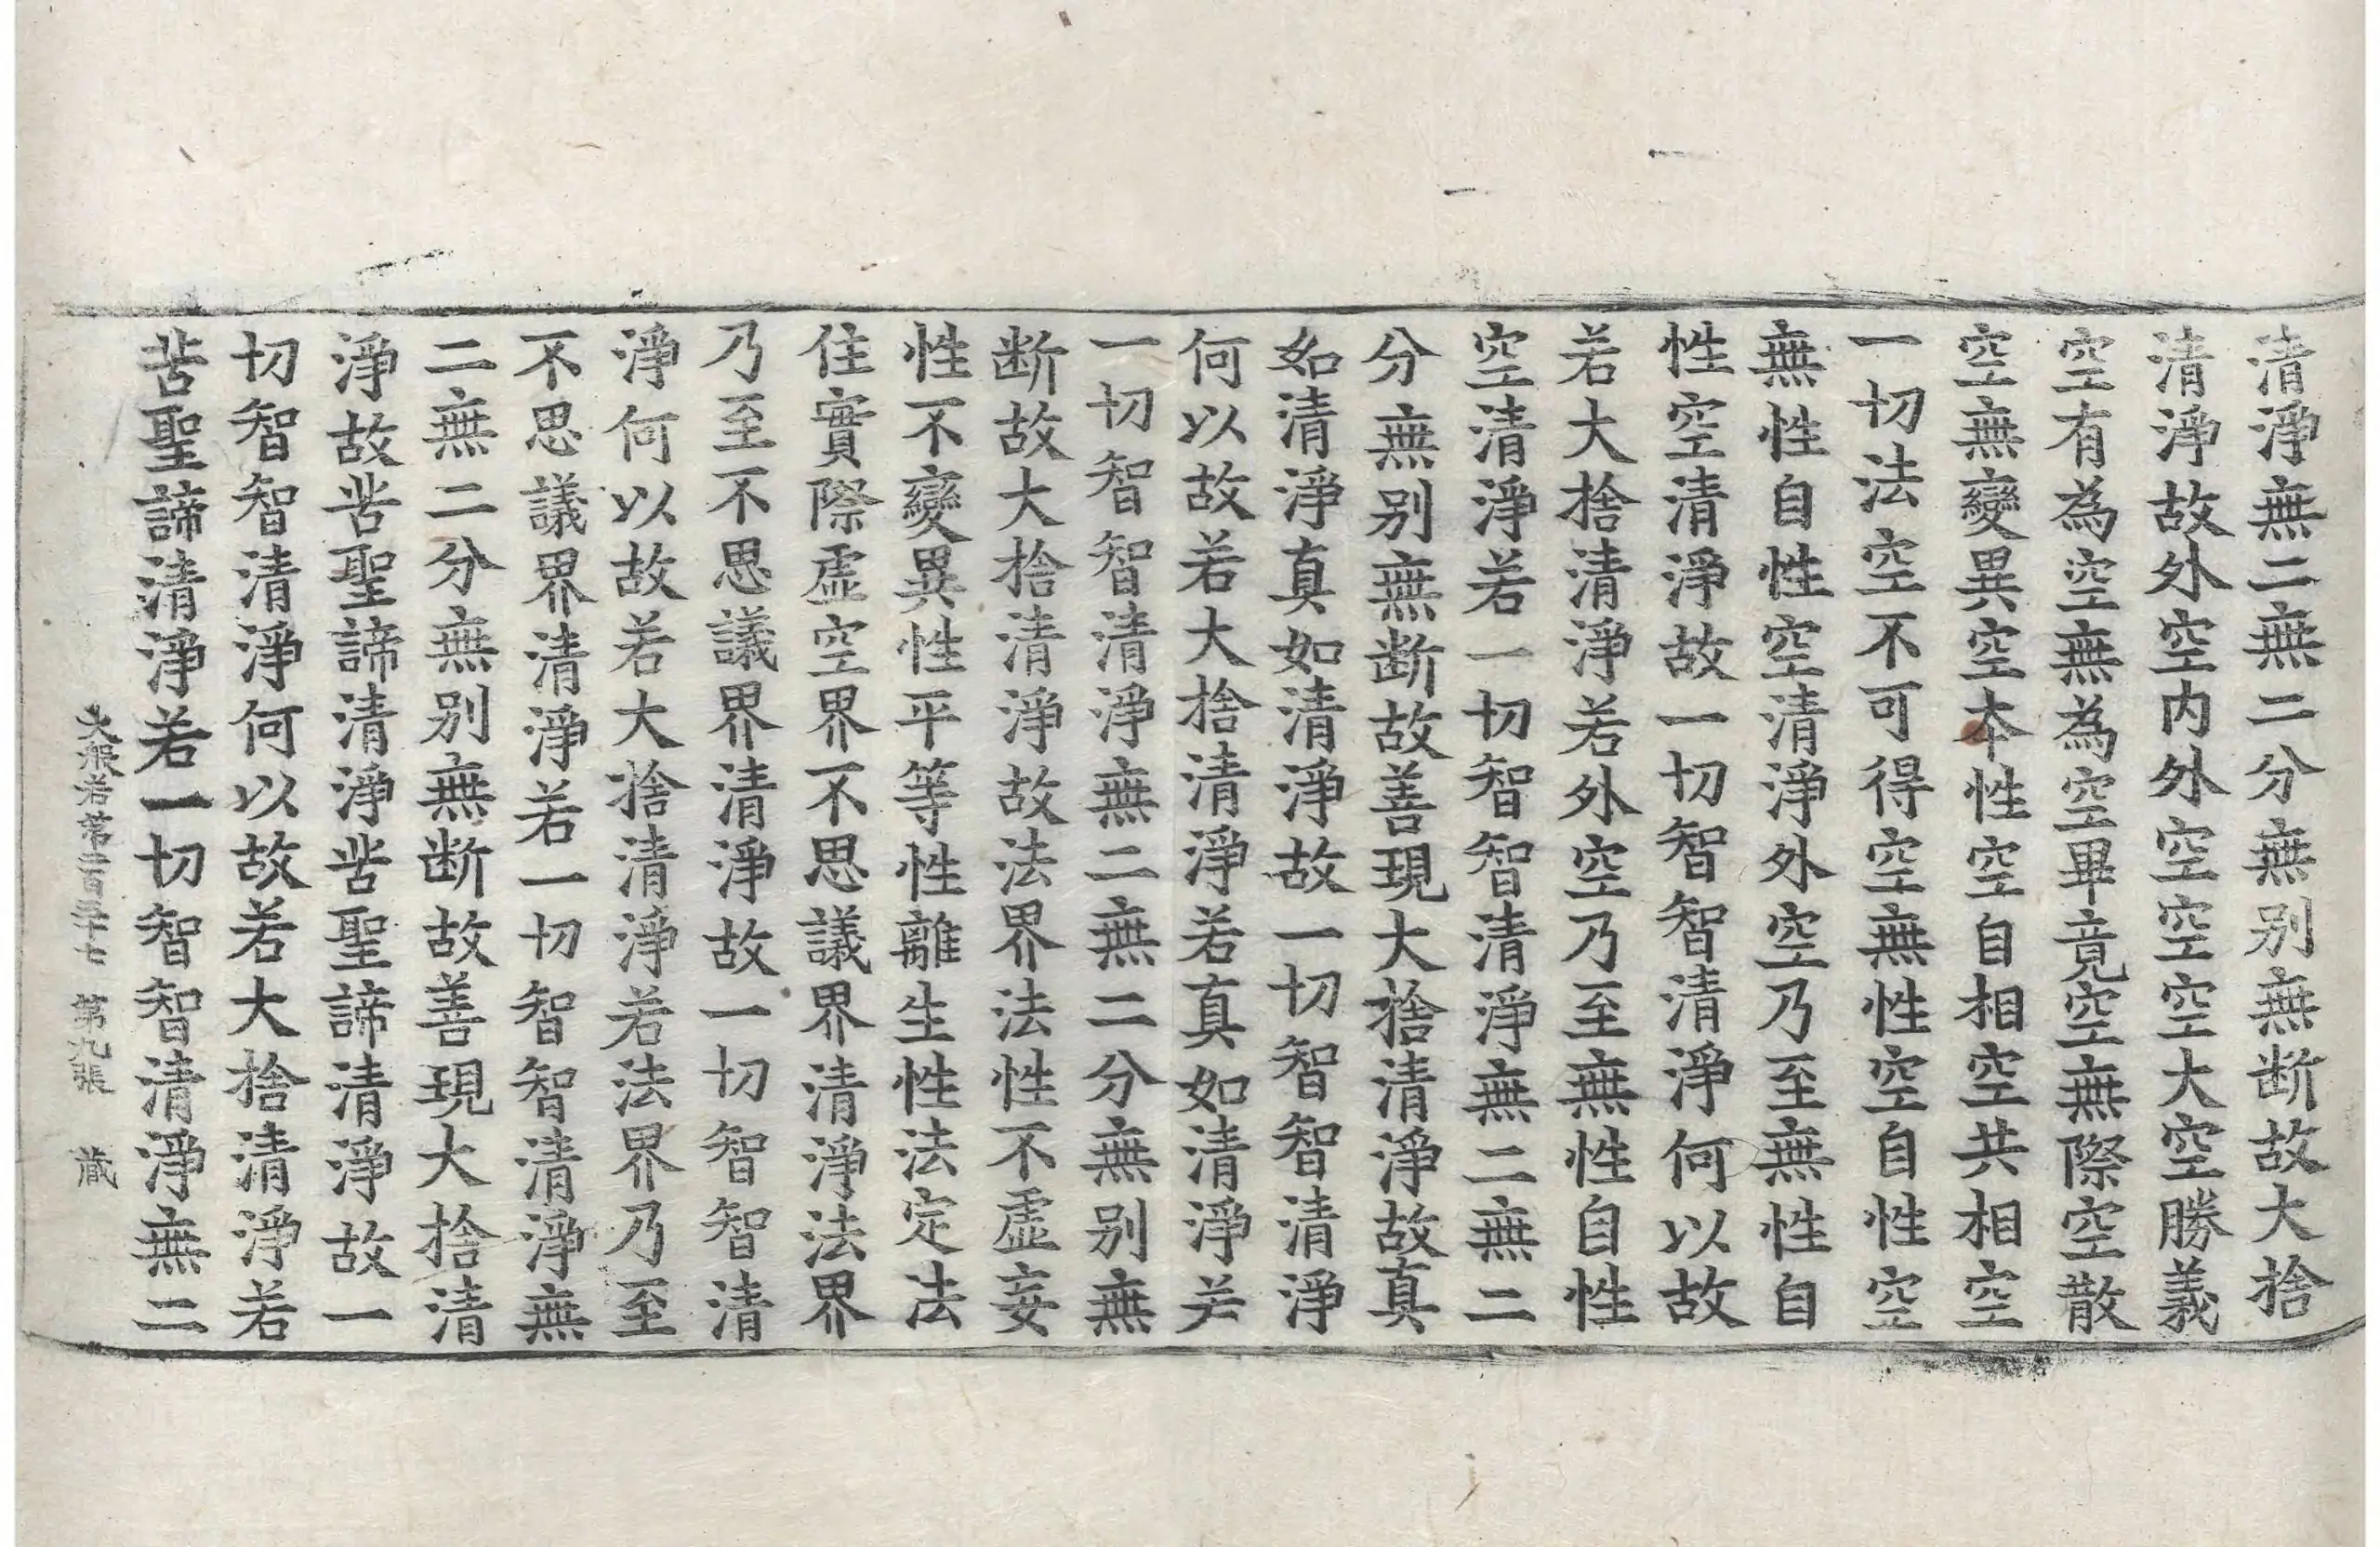 清淨無二無二分無别無断故大捨
清淨故外空内外空空空大空勝義
空有為空無為空畢竟空無際空散
空無變異空本性空自相空共相空
一切法空不可得空無性空自性空
無性自性空清淨外空乃至無性自
性空清淨故一切智智清淨何以故
若大捨清淨若外空乃至無性自性
空清淨若一切智智清淨無二無二
分無别無断故善現大捨清淨故真
如清淨真如清淨故一切智智清淨
何以故若大捨清淨若真如清淨若
一切智智清淨無二無二分無别無
断故大捨清淨故法界法性不虛妄
性不變異性平等性離生性法定法
住實際虛空界不思議界清淨法界
乃至不思議界清淨故一切智智清
淨何以故若大捨清淨若法界乃至
不思議界清淨若一切智智清淨無
二無二分無别無断故善現大捨清
淨故苦聖諦清淨苦聖諦清淨故一
切智智清淨何以故若大捨清淨若
苦聖諦清淨若一切智智清淨無二
大般若第二百三十七 第九張 蔵